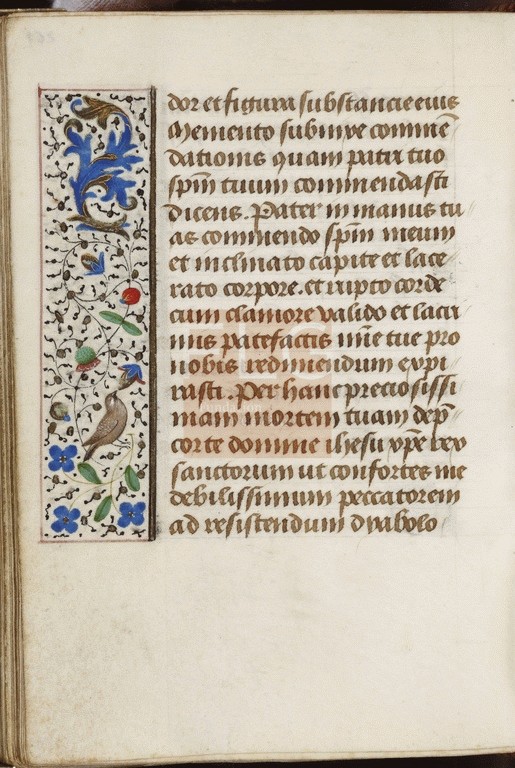 dor et figura substancie eius
Memento subinxe commē
dationis quam patri tuo
spm̄ tuum commendasti
dicens. Pater in manus tu
as commendo spm̄ meum
et inclinato capite et lace
rato corpore. et rupto corde
cum clamore valido et lacri
mis patefactis mie tue pro
nobis redimendum expi
rasti. Per hanc preciosissi
mam mortem tuam dep̄
cor te domine ihesu xpe rex
sanctorum ut confortes me
debilissimum peccatorem
ad resistendum dyabolo